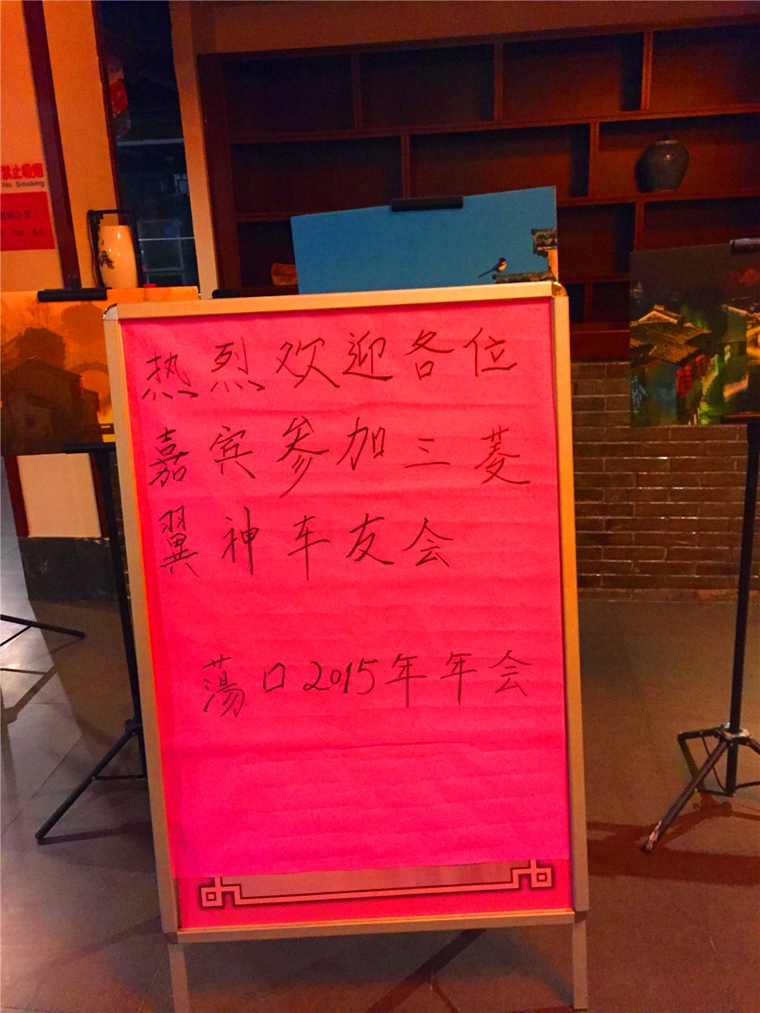 禁止吸烟
No Smoking
热烈欢迎各位
嘉宾参加三菱
翼神车友会
蕩口2015年年会